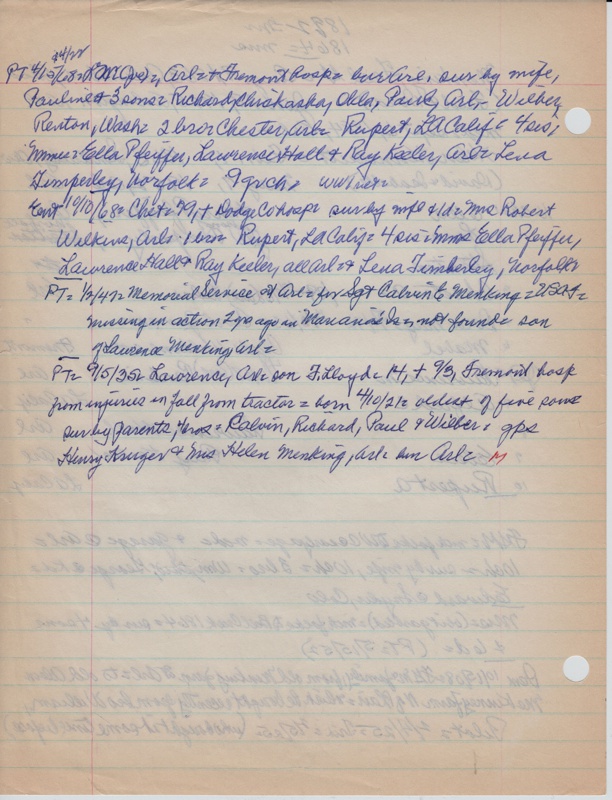 PT 4/15/68= L M (70)=, Arl= + Fremont hosp= bur Arl. sur by wife,
Pauline & 3 sons= Richard, Okla, Paul, Arl,= Wilber,
Renton, Wash= 2 bro= Chester, Arl= Rupert, LA Calif= 4 sis,
Mmes= Ella Pfeiffer, Lawrence Hall & Ray Keeler, Arl= Lena
Timperley, Norfolk= 9 grch,
Ent 10/10/68= Chet= 79, + Dodge Co hosp= sur by wife & 1 d= Mrs Robert
Wilkins, Arl= 1 bro= Rupert, LA Calif= 4 sis= Mmes Ella Pfeiffer,
Lawrence Hall & Ray Keeler, all Arl & Lena Timberley, Norfolk=
PT= 1/2/47= Memorial Service at Arl= for Sgt Calvin E Menking= USAF=
missing in action 2 yrs ago in Marianas Is= not found= son
of Lawrence Menking, Arl=
PT= 9/5/35= Lawrence, Arl= son Floyd= 14, + 9/3, Fremont hosp
from injuries in fall from tractor= born 4/10/21= oldest of five sons
sur by parents, 4 bros= Calvin, Richard, Paul & Wilber= gps
Henry Kruger & Mrs Helen Menking, Arl= bur Arl= M